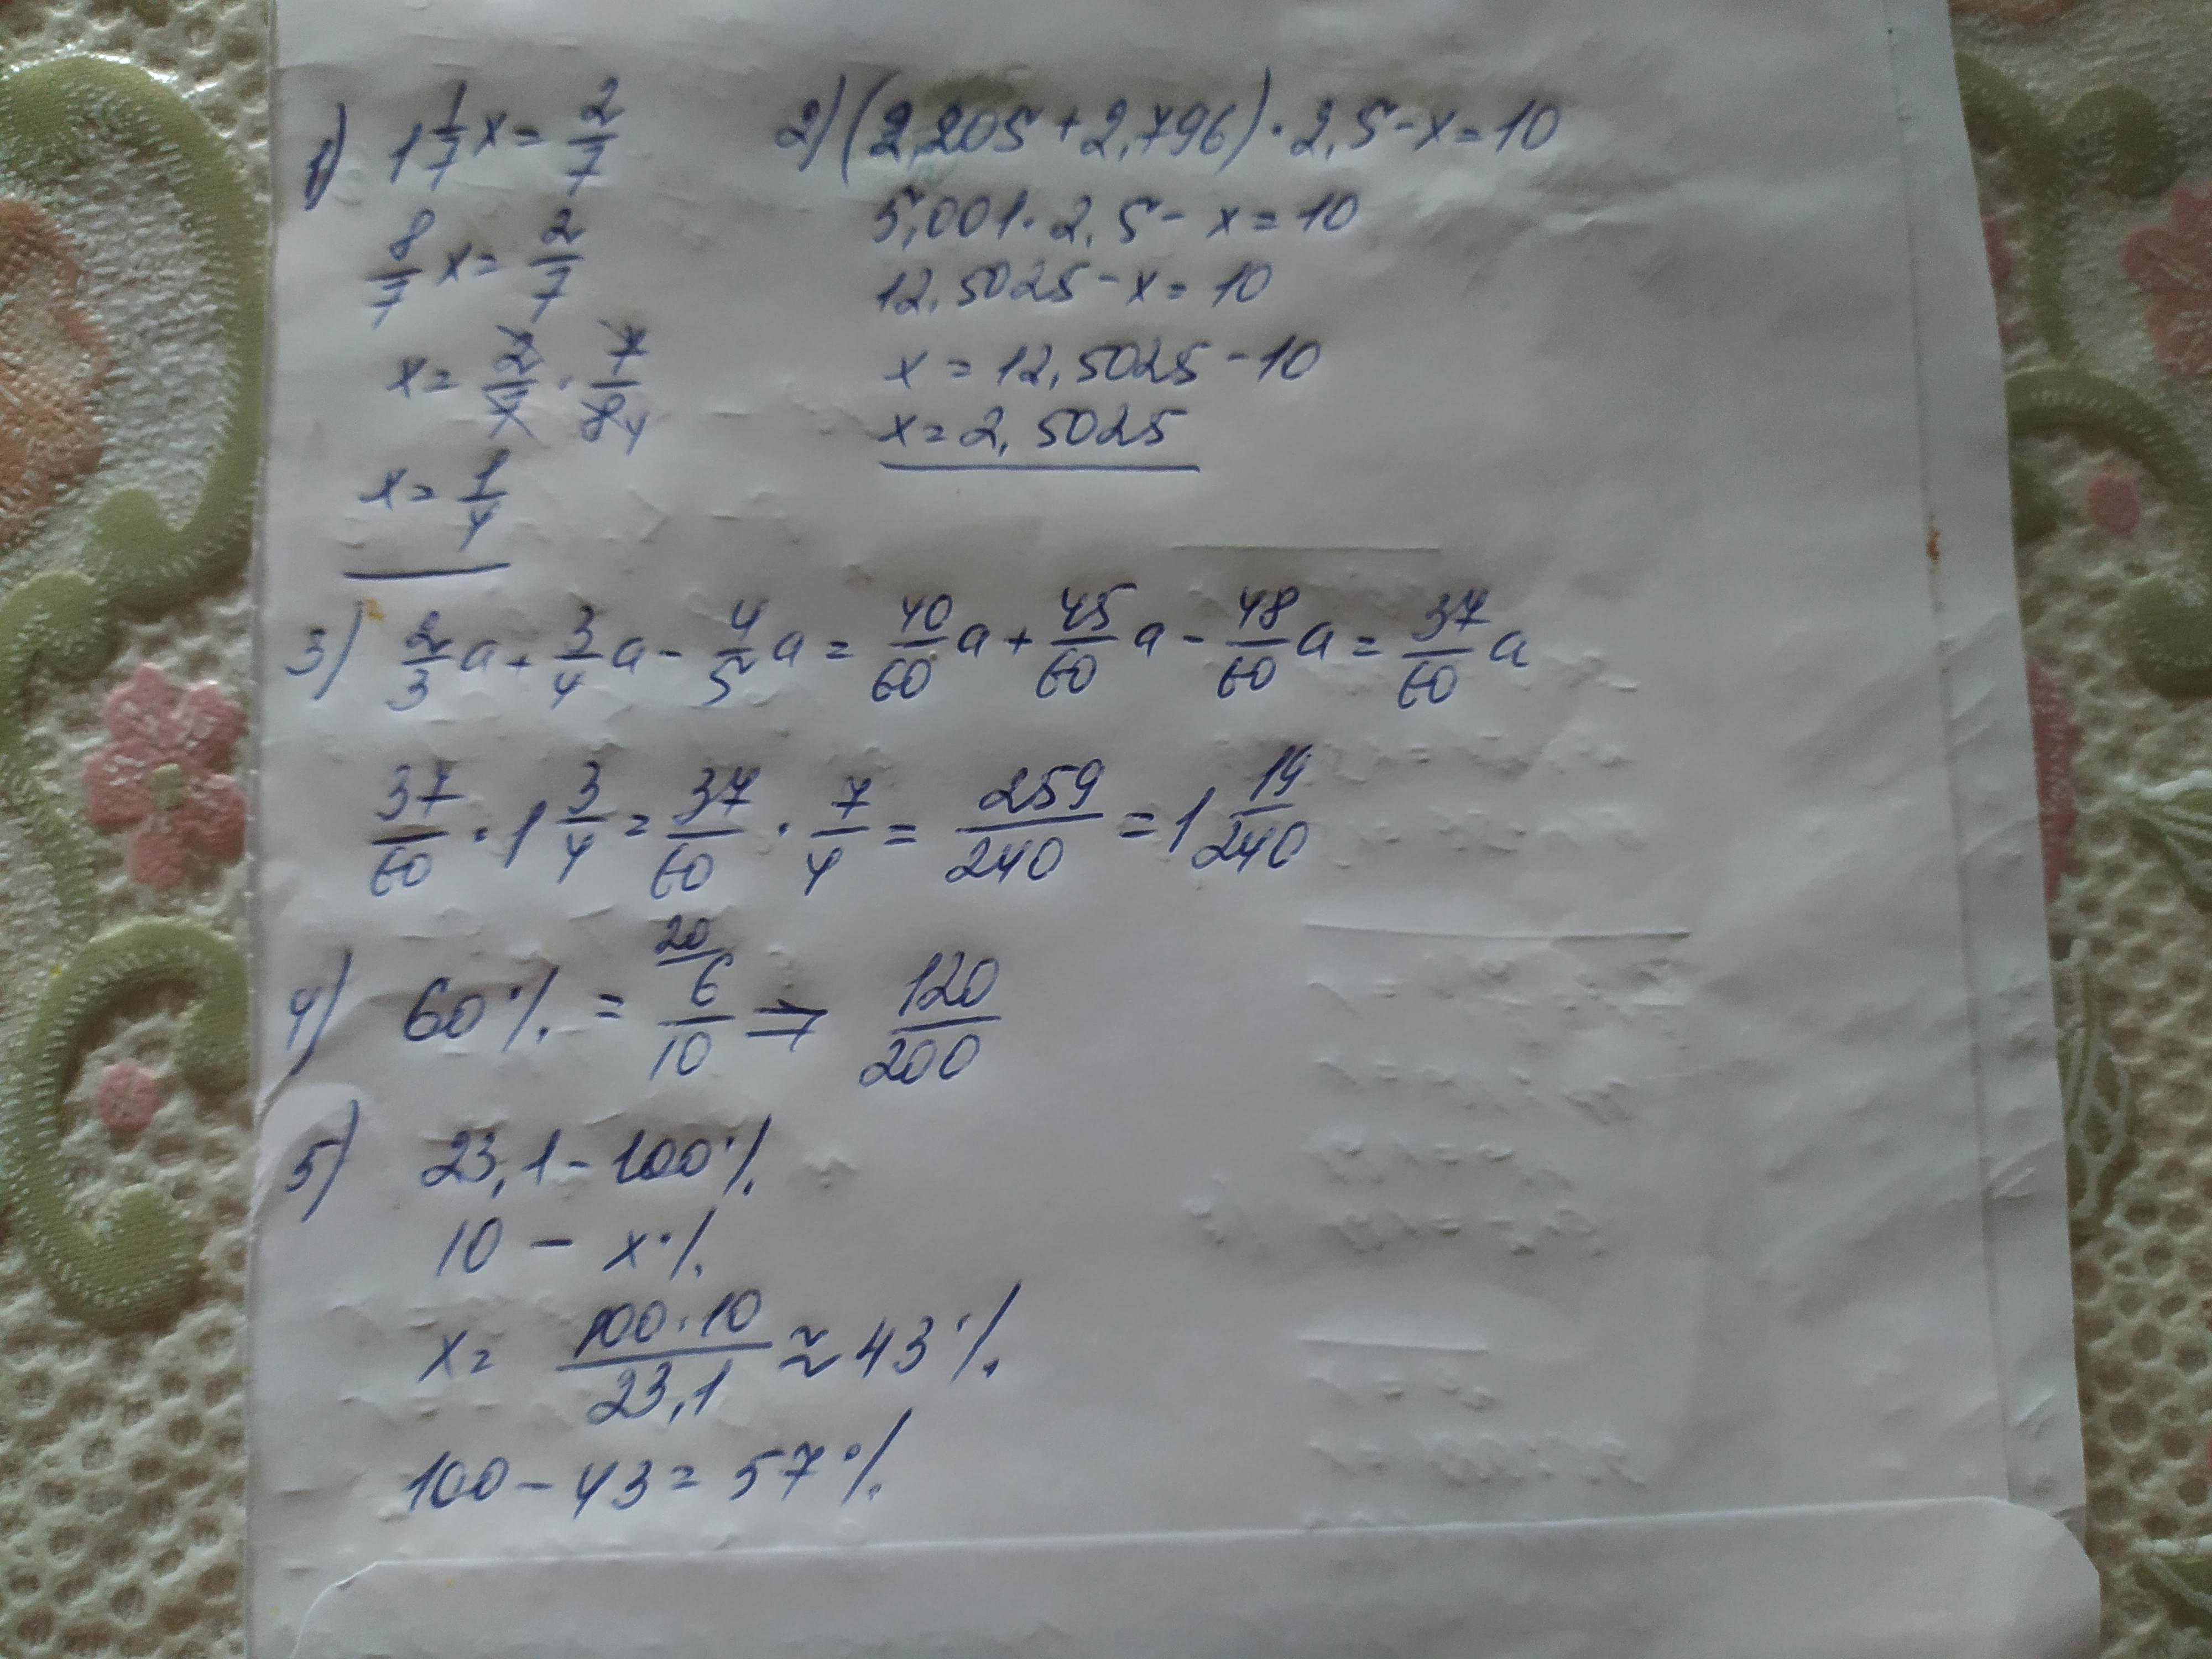 1) 1 1/7 x = 2/7
8/7 x = 2/7
x = 2/7 · 7/8 4
x = 1/4
2) (2,205 + 2,796) · 2,5 - x = 10
5,001 · 2,5 - x = 10
12,5025 - x = 10
x = 12,5025 - 10
x = 2,5025
3) 2/3 a + 3/4 a - 4/5 a = 40/60 a + 45/60 a - 48/60 a = 37/60 a
37/60 · 1 3/4 = 37/60 · 7/4 = 259/240 = 1 19/240
4) 60% = 20/ 6/10 => 120/200
5) 23,1 - 100%
10 - x%
x = 100·10/23,1 ≈ 43%
100 - 43 = 57%